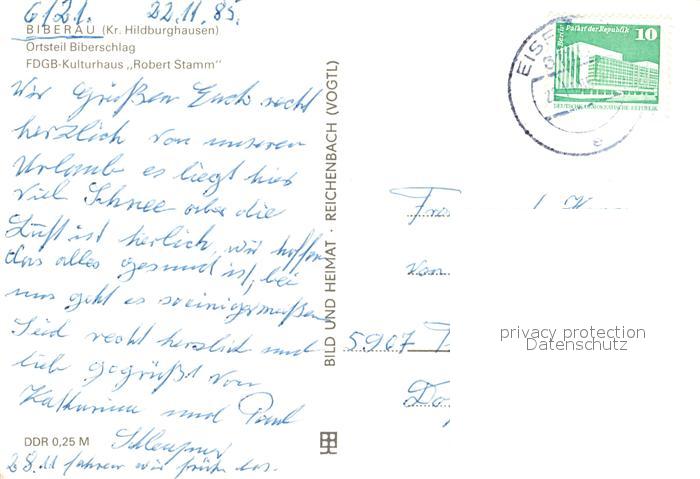 6121. 22.11.85.
BIBERAU (Kr. Hildburghausen)
Ortsteil Biberschlag
FDGB-Kulturhaus „Robert Stamm"
Wir Grüßen Euch recht
herzlich von unseren
Urlaub es liegt hier
viel Schnee aber die
Luft ist herlich, wir hoffen
das alles gesund ist, bei
uns geht es so einigermaßen
Seid recht herzlich und
lieb gegrüßt von
Katharina und Paul
28.11 fahren wir früh los.
DDR 0,25 M
BILD UND HEIMAT · REICHENBACH (VOGTL)
EISF
Berlin Palast der Republik
10
DEUTSCHE DEMOKRATISCHE REPUBLIK
5907
privacy protection
Datenschutz